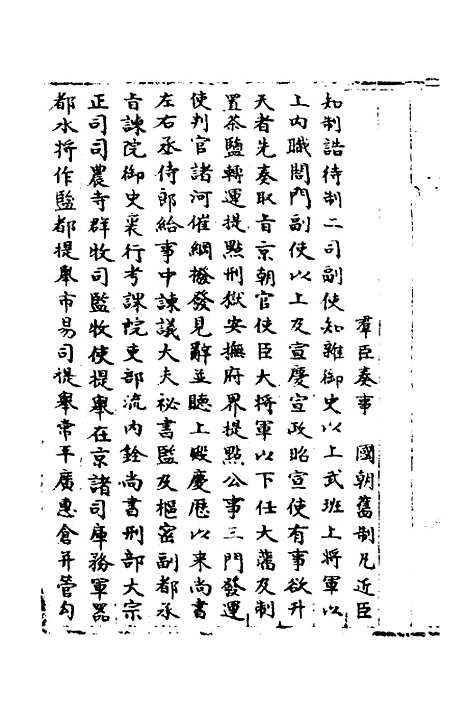 羣臣奏事　國朝舊制凡近臣
知制誥待制二司副使知雜御史以上武班上將軍以
上內職閤門副使以上及宣慶宣政昭宣使有事欲升
天者先奏取旨京朝官使臣大將軍以下任大藩及制
置茶鹽轉運提點刑獄安撫府界提點公事三門發運
使判官諸河催綱撥發見辭並聽上殿慶厯以来尚書
左右丞侍郎給事中諫議大夫祕書監及樞密副都承
旨諫院御史裏行考課院吏部流內銓尚書刑部大宗
正司司農寺群牧司監牧使提舉在京諸司庫務軍器
都水將作監都提舉市易司提舉常平廣惠倉并管勾